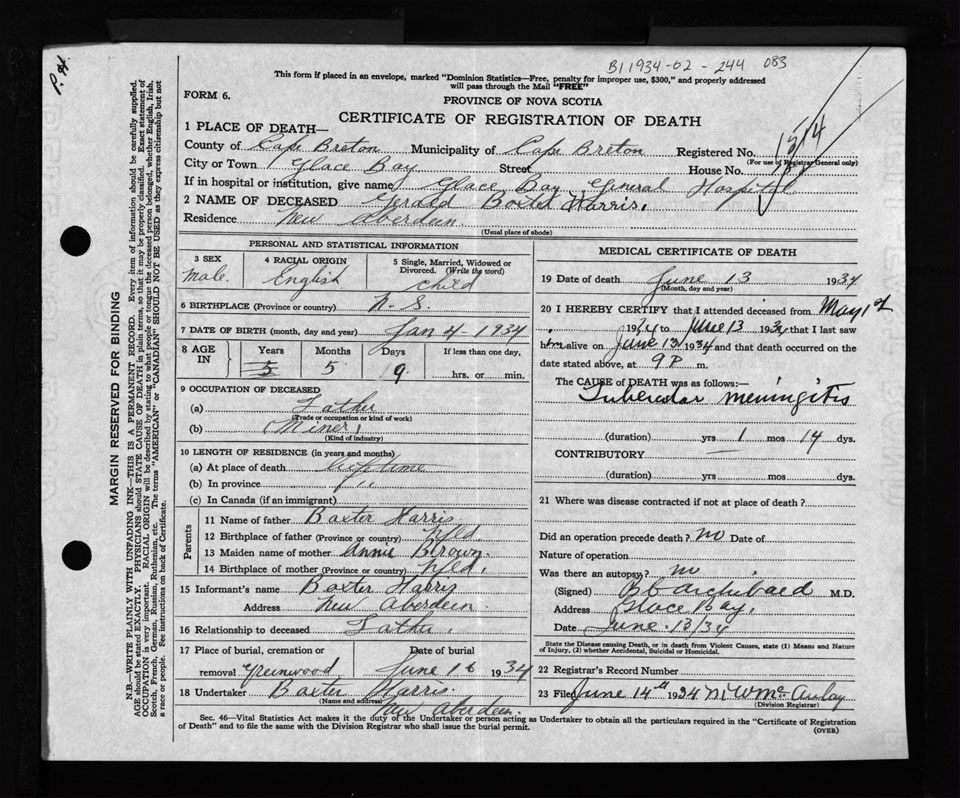 B1 1934-02-244 083
P. 4.
This form if placed in an envelope, marked "Dominion Statistics—Free, penalty for improper use, $300," and properly addressed
will pass through the Mail "FREE"
FORM 6.
PROVINCE OF NOVA SCOTIA
CERTIFICATE OF REGISTRATION OF DEATH
1 PLACE OF DEATH—
County of Cape Breton Municipality of Cape Breton Registered No.
(For use of Registrar General only)
City or Town Glace Bay Street House No.
If in hospital or institution, give name Glace Bay General Hospital
2 NAME OF DECEASED Gerald Baxter Harris.
Residence New Aberdeen
(Usual place of abode)
PERSONAL AND STATISTICAL INFORMATION
3 SEX 4 RACIAL ORIGIN 5 Single, Married, Widowed or
Divorced. (Write the word)
Male. English child
6 BIRTHPLACE (Province or country) N. S.
7 DATE OF BIRTH (month, day and year) Jan 4 - 1934
8 AGE IN Years Months Days If less than one day,
5 5 9 hrs. or min.
9 OCCUPATION OF DECEASED
(a) Father
(Trade or occupation or kind of work)
(b) (Miner)
(Kind of industry)
10 LENGTH OF RESIDENCE (in years and months)
(a) At place of death life time
(b) In province "
(c) In Canada (if an immigrant)
Parents
11 Name of father Baxter Harris
12 Birthplace of father (Province or country) Nfld.
13 Maiden name of mother Annie Brown.
14 Birthplace of mother (Province or country) Nfld.
15 Informant's name Baxter Harris
Address New Aberdeen
16 Relationship to deceased Father.
17 Place of burial, cremation or removal Greenwood Date of burial June 16 1934
18 Undertaker Baxter Harris.
(Name and address) New Aberdeen.
MEDICAL CERTIFICATE OF DEATH
19 Date of death June 13 1934
(Month, day and year)
20 I HEREBY CERTIFY that I attended deceased from May 1st
1934 to June 13 1934 that I last saw
him alive on June 13 1934 and that death occurred on the
date stated above, at 9 P m.
The CAUSE of DEATH was as follows:—
Tubercular meningitis
(duration) yrs 1 mos 14 dys.
CONTRIBUTORY —
(duration) yrs mos dys.
21 Where was disease contracted if not at place of death?
Did an operation precede death? no Date of
Nature of operation
Was there an autopsy? no
(Signed) B Archibald M.D.
Address Glace Bay.
Date June. 13/34
State the Disease causing Death, or in death from Violent Causes, state (1) Means and Nature
of Injury, (2) whether Accidental, Suicidal or Homicidal.
22 Registrar's Record Number
23 Filed June 14th 1934 M W McAulay
(Division Registrar)
Sec. 46—Vital Statistics Act makes it the duty of the Undertaker or person acting as Undertaker to obtain all the particulars required in the "Certificate of Registration
of Death" and to file the same with the Division Registrar who shall issue the burial permit.
(OVER)
MARGIN RESERVED FOR BINDING
N.B.—WRITE PLAINLY WITH UNFADING INK—THIS IS A PERMANENT RECORD. Every item of information should be carefully supplied.
AGE should be stated EXACTLY. PHYSICIANS should STATE CAUSE OF DEATH in plain terms, so that it may be properly classified. Exact statement of
OCCUPATION is very important. RACIAL ORIGIN will be described by stating to what people or tongue the deceased person belonged, whether English, Irish,
Scotch, French, German, Russian, Ruthenian, etc. The terms "AMERICAN" or "CANADIAN" SHOULD NOT BE USED as they express citizenship but not
a race or people. See instructions on back of Certificate.